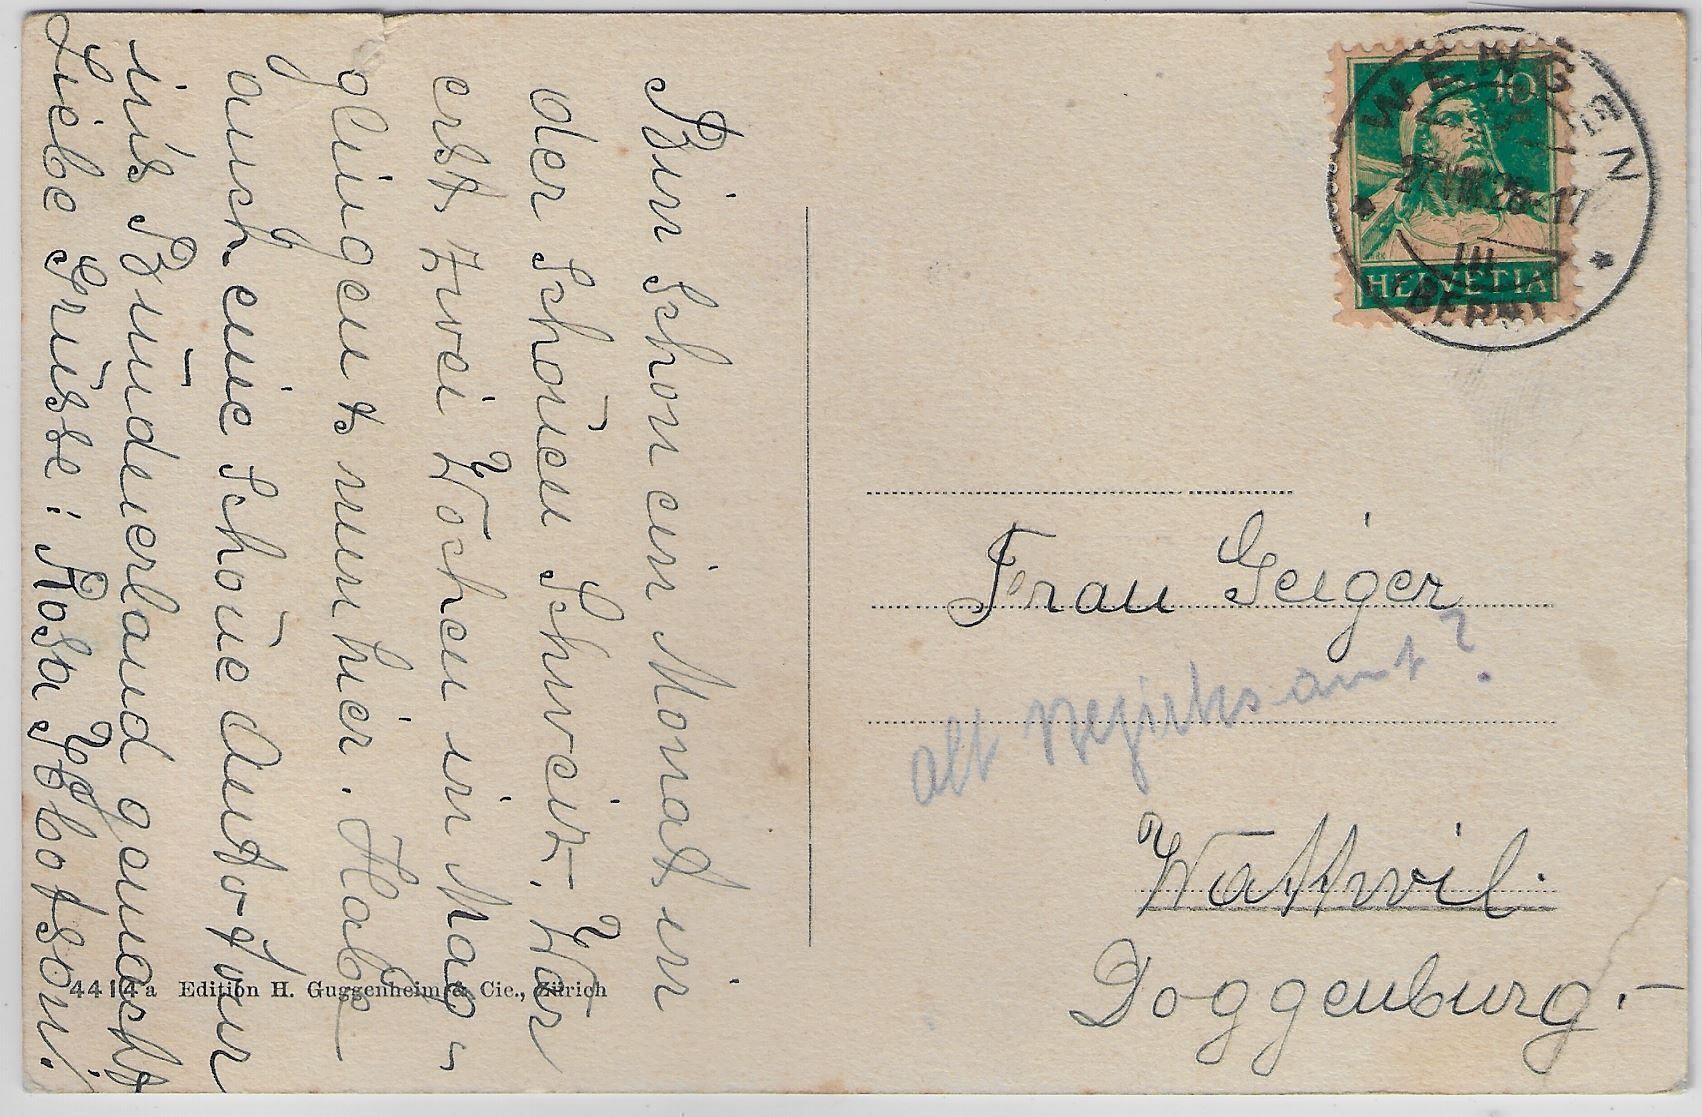 Bin schon ein Monat in
der schönen Schweiz. War
erst zwei Wochen in Mag-
glingen u. nun hier. Habe
auch eine schöne Autotour
ins Bündnerland gemacht
Liebe Grüsse: Rosa Ibbotson.
WENGEN
10
27.VIII.26-17
III
(BERN)
HELVETIA
Frau Geiger
alt Bezirksamt?
Wattwil.
Doggenburg.-
4414a Edition H. Guggenheim & Cie., Zürich